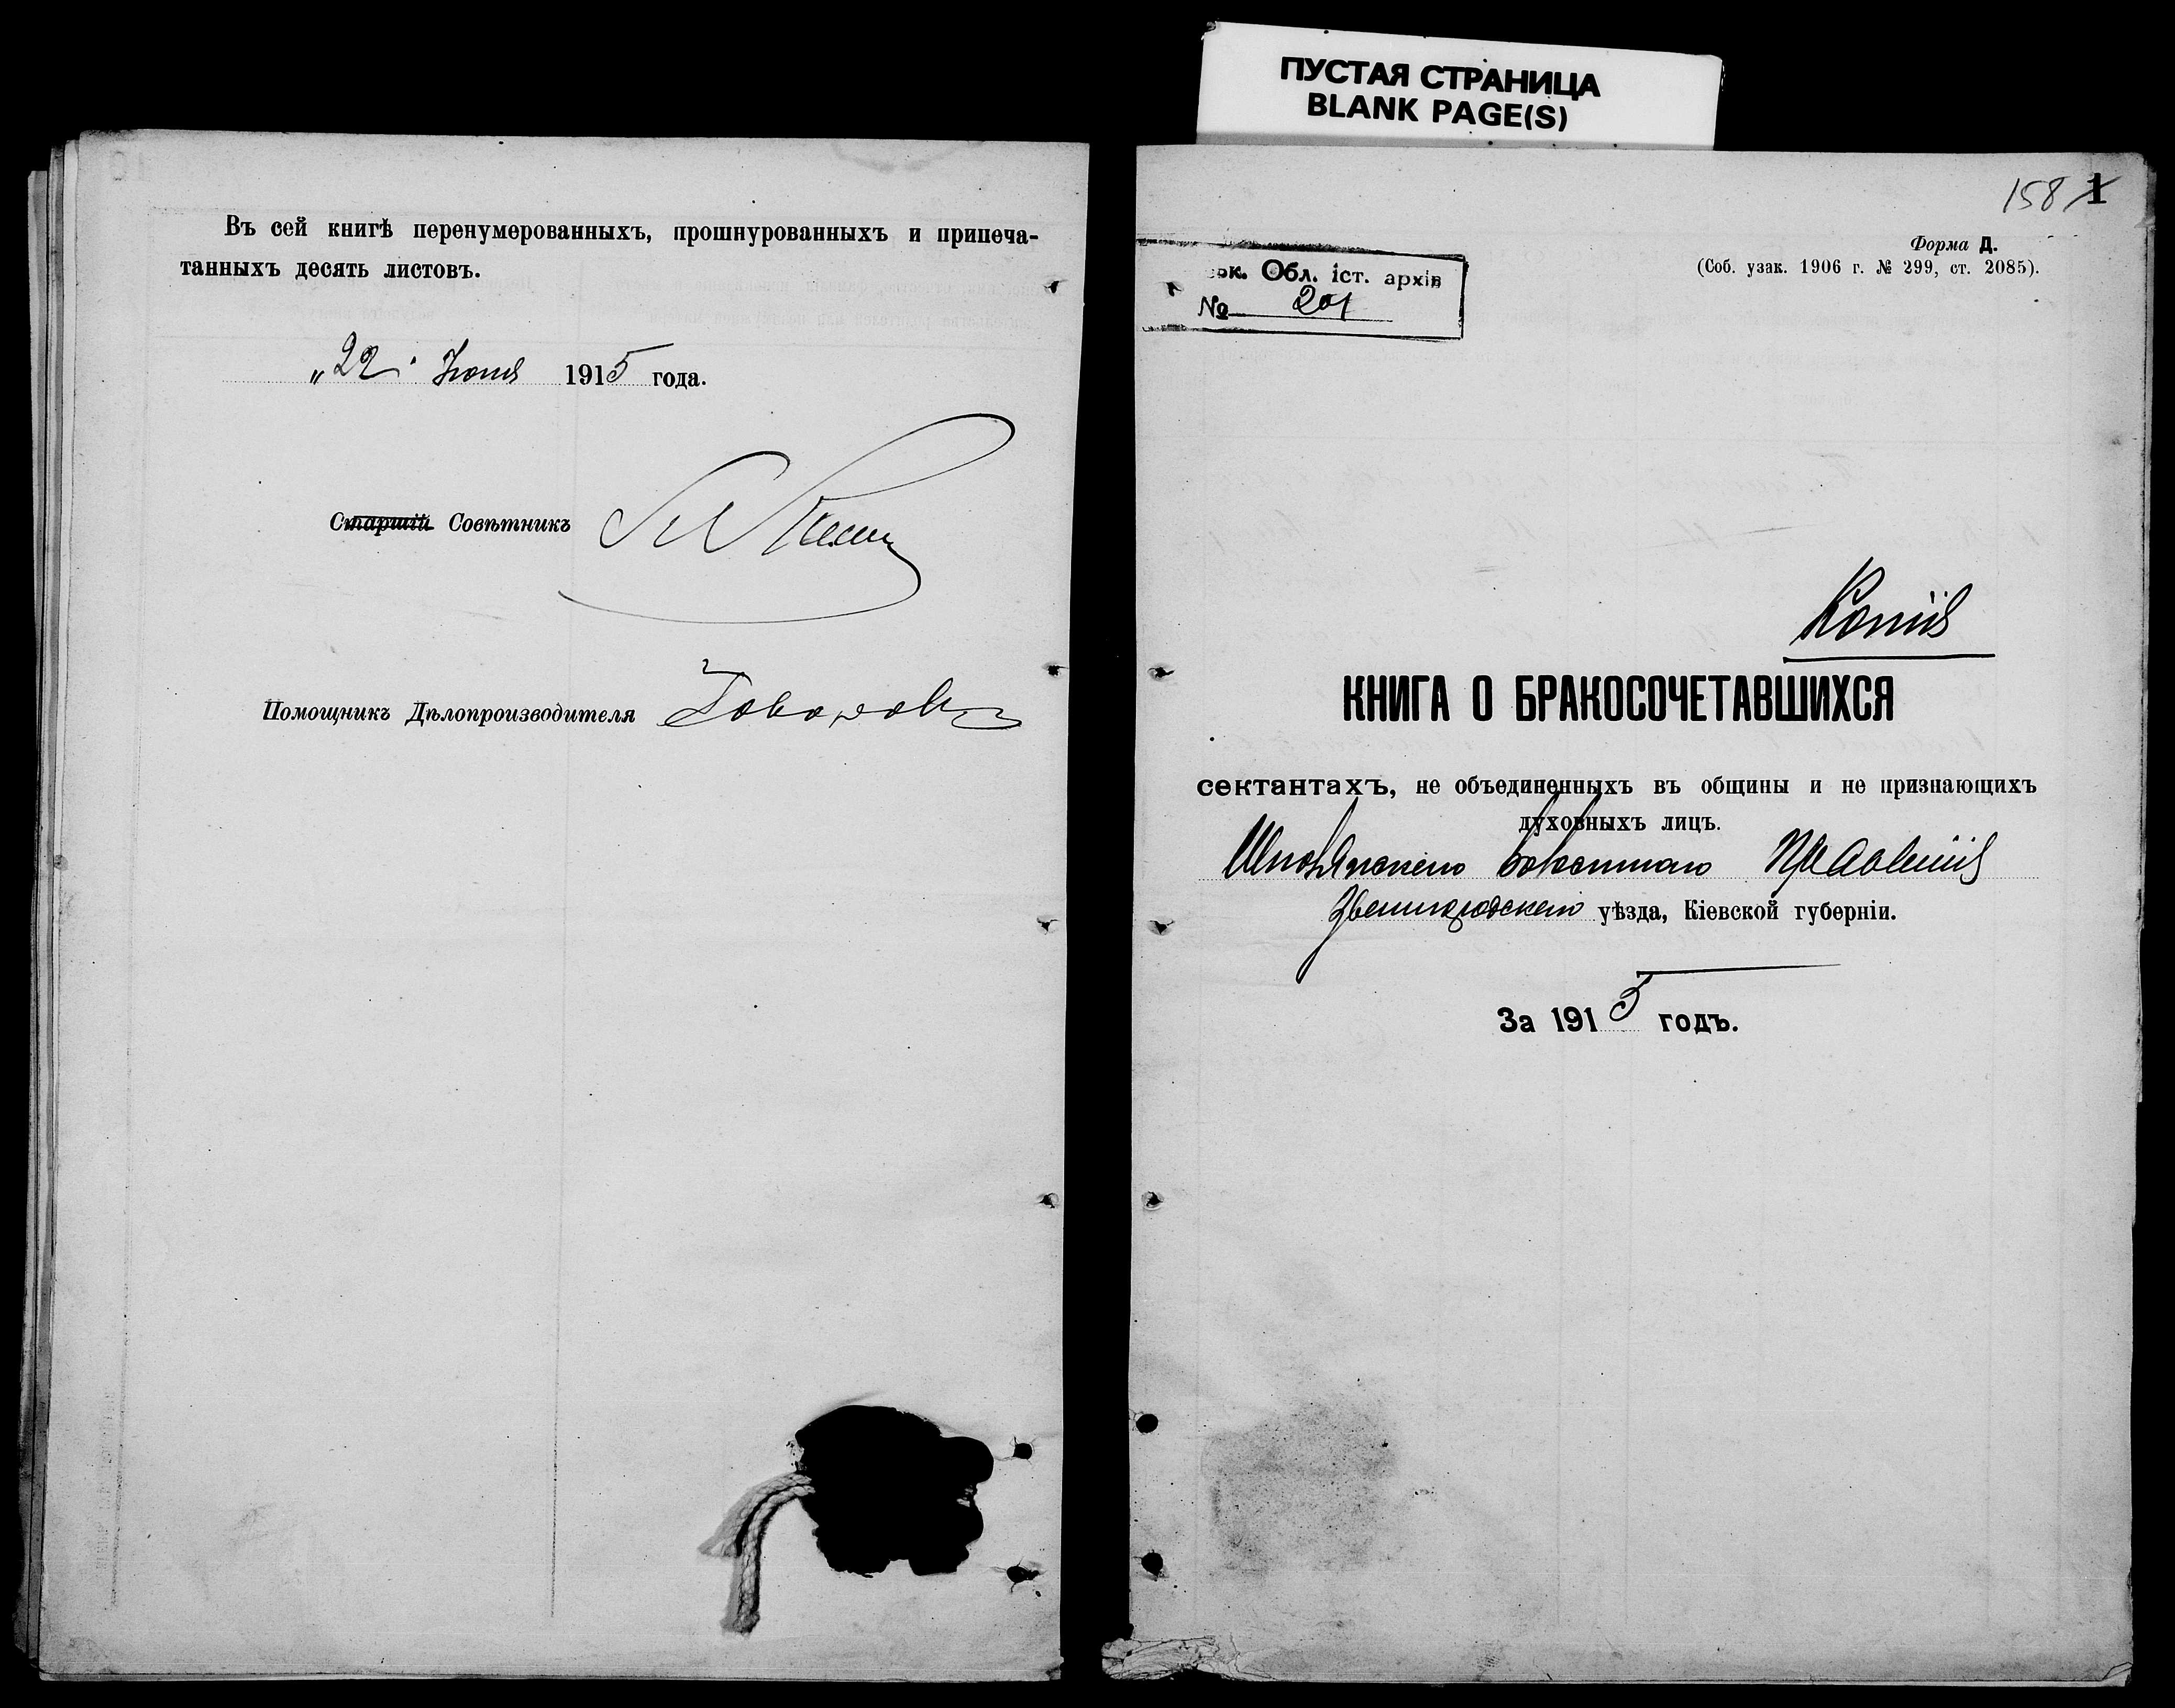 ПУСТАЯ СТРАНИЦА
BLANK PAGE(S)
Въ сей книгѣ перенумерованныхъ, прошнурованныхъ и припеча-
танныхъ десять листовъ.
„22" Іюня 1915 года.
Старшій Совѣтникъ
Помощникъ Дѣлопроизводителя Говоровъ
158 1
Форма Д.
(Соб. узак. 1906 г. № 299, ст. 2085).
ьк. Обл. іст. архів
№ 201
Копія
КНИГА О БРАКОСОЧЕТАВШИХСЯ
сектантахъ, не объединенныхъ въ общины и не признающихъ
духовныхъ лицъ.
Шполянскаго Волостнаго Правленія
Звенигородскаго уѣзда, Кіевской губерніи.
За 1915 годъ.